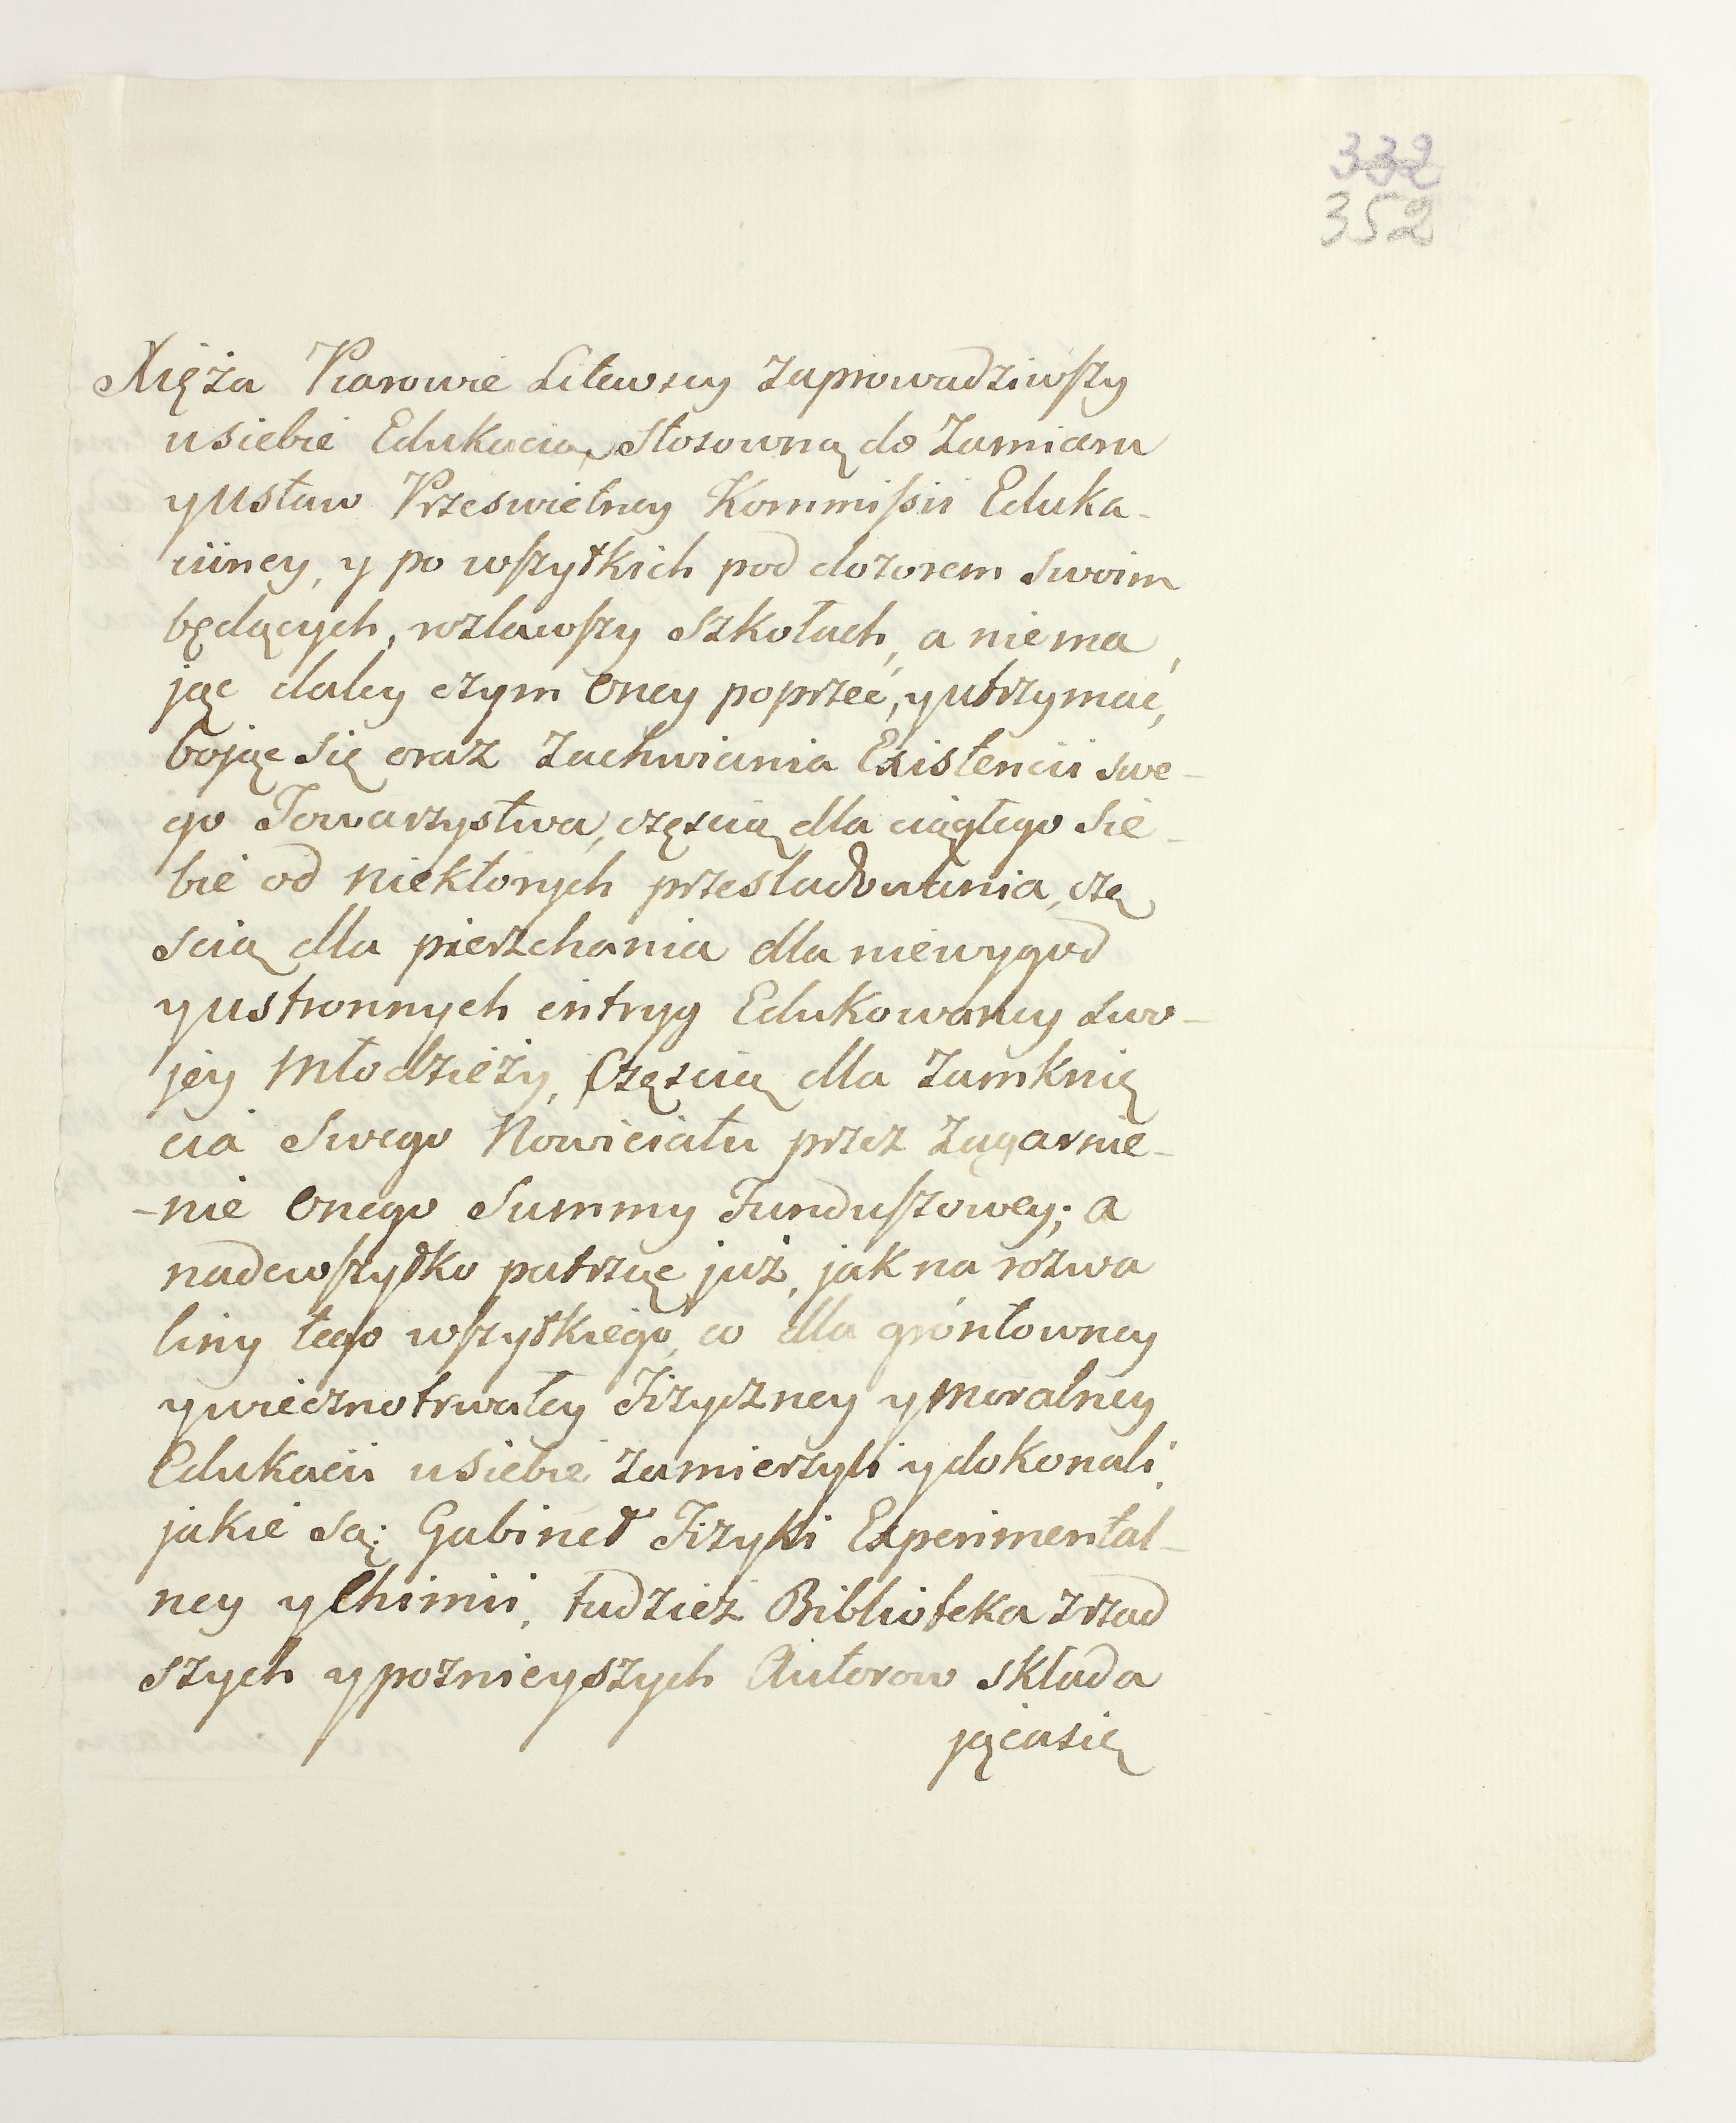 332
352
Xięża Piarowie Litewscy zaprowadziwszy
u siebie Edukacią stosowną do Zamiaru
y Ustaw Prześwietney Kommissii Eduka-
ciiney, y po wszytkich pod dozorem swoim
będących, rozlawszy Szkołach, a niema,
jąc daley czym Oney poprzeć, y utrzymać,
bojąc się oraz Zachwiania Existencii swe-
go Towarzystwa, częscią dla ciągłego Sie-
bie od niektorych przesladowania, czę
scią dla pierzchania dla niewygod
y ustronnych intryg Edukowaney swo-
jey Młodzieży, Częscią dla Zamknię
cia Swego Nowiciatu przez Zagarnie-
-nie Onego Summy Funduszowey; a
nadewszytko patrząc już, jak na rozwa
liny tego wszytkiego, co dla grontowney
y wiecznotrwałey Fizyczney y Moralney
Edukacii u siebie zamierzyli y dokonali,
jakie są: Gabinet Fizyki Experimental-
ney y Chimii, tudzież Biblioteka z rzad
szych y poznieyszych Autorow składa
jąca się